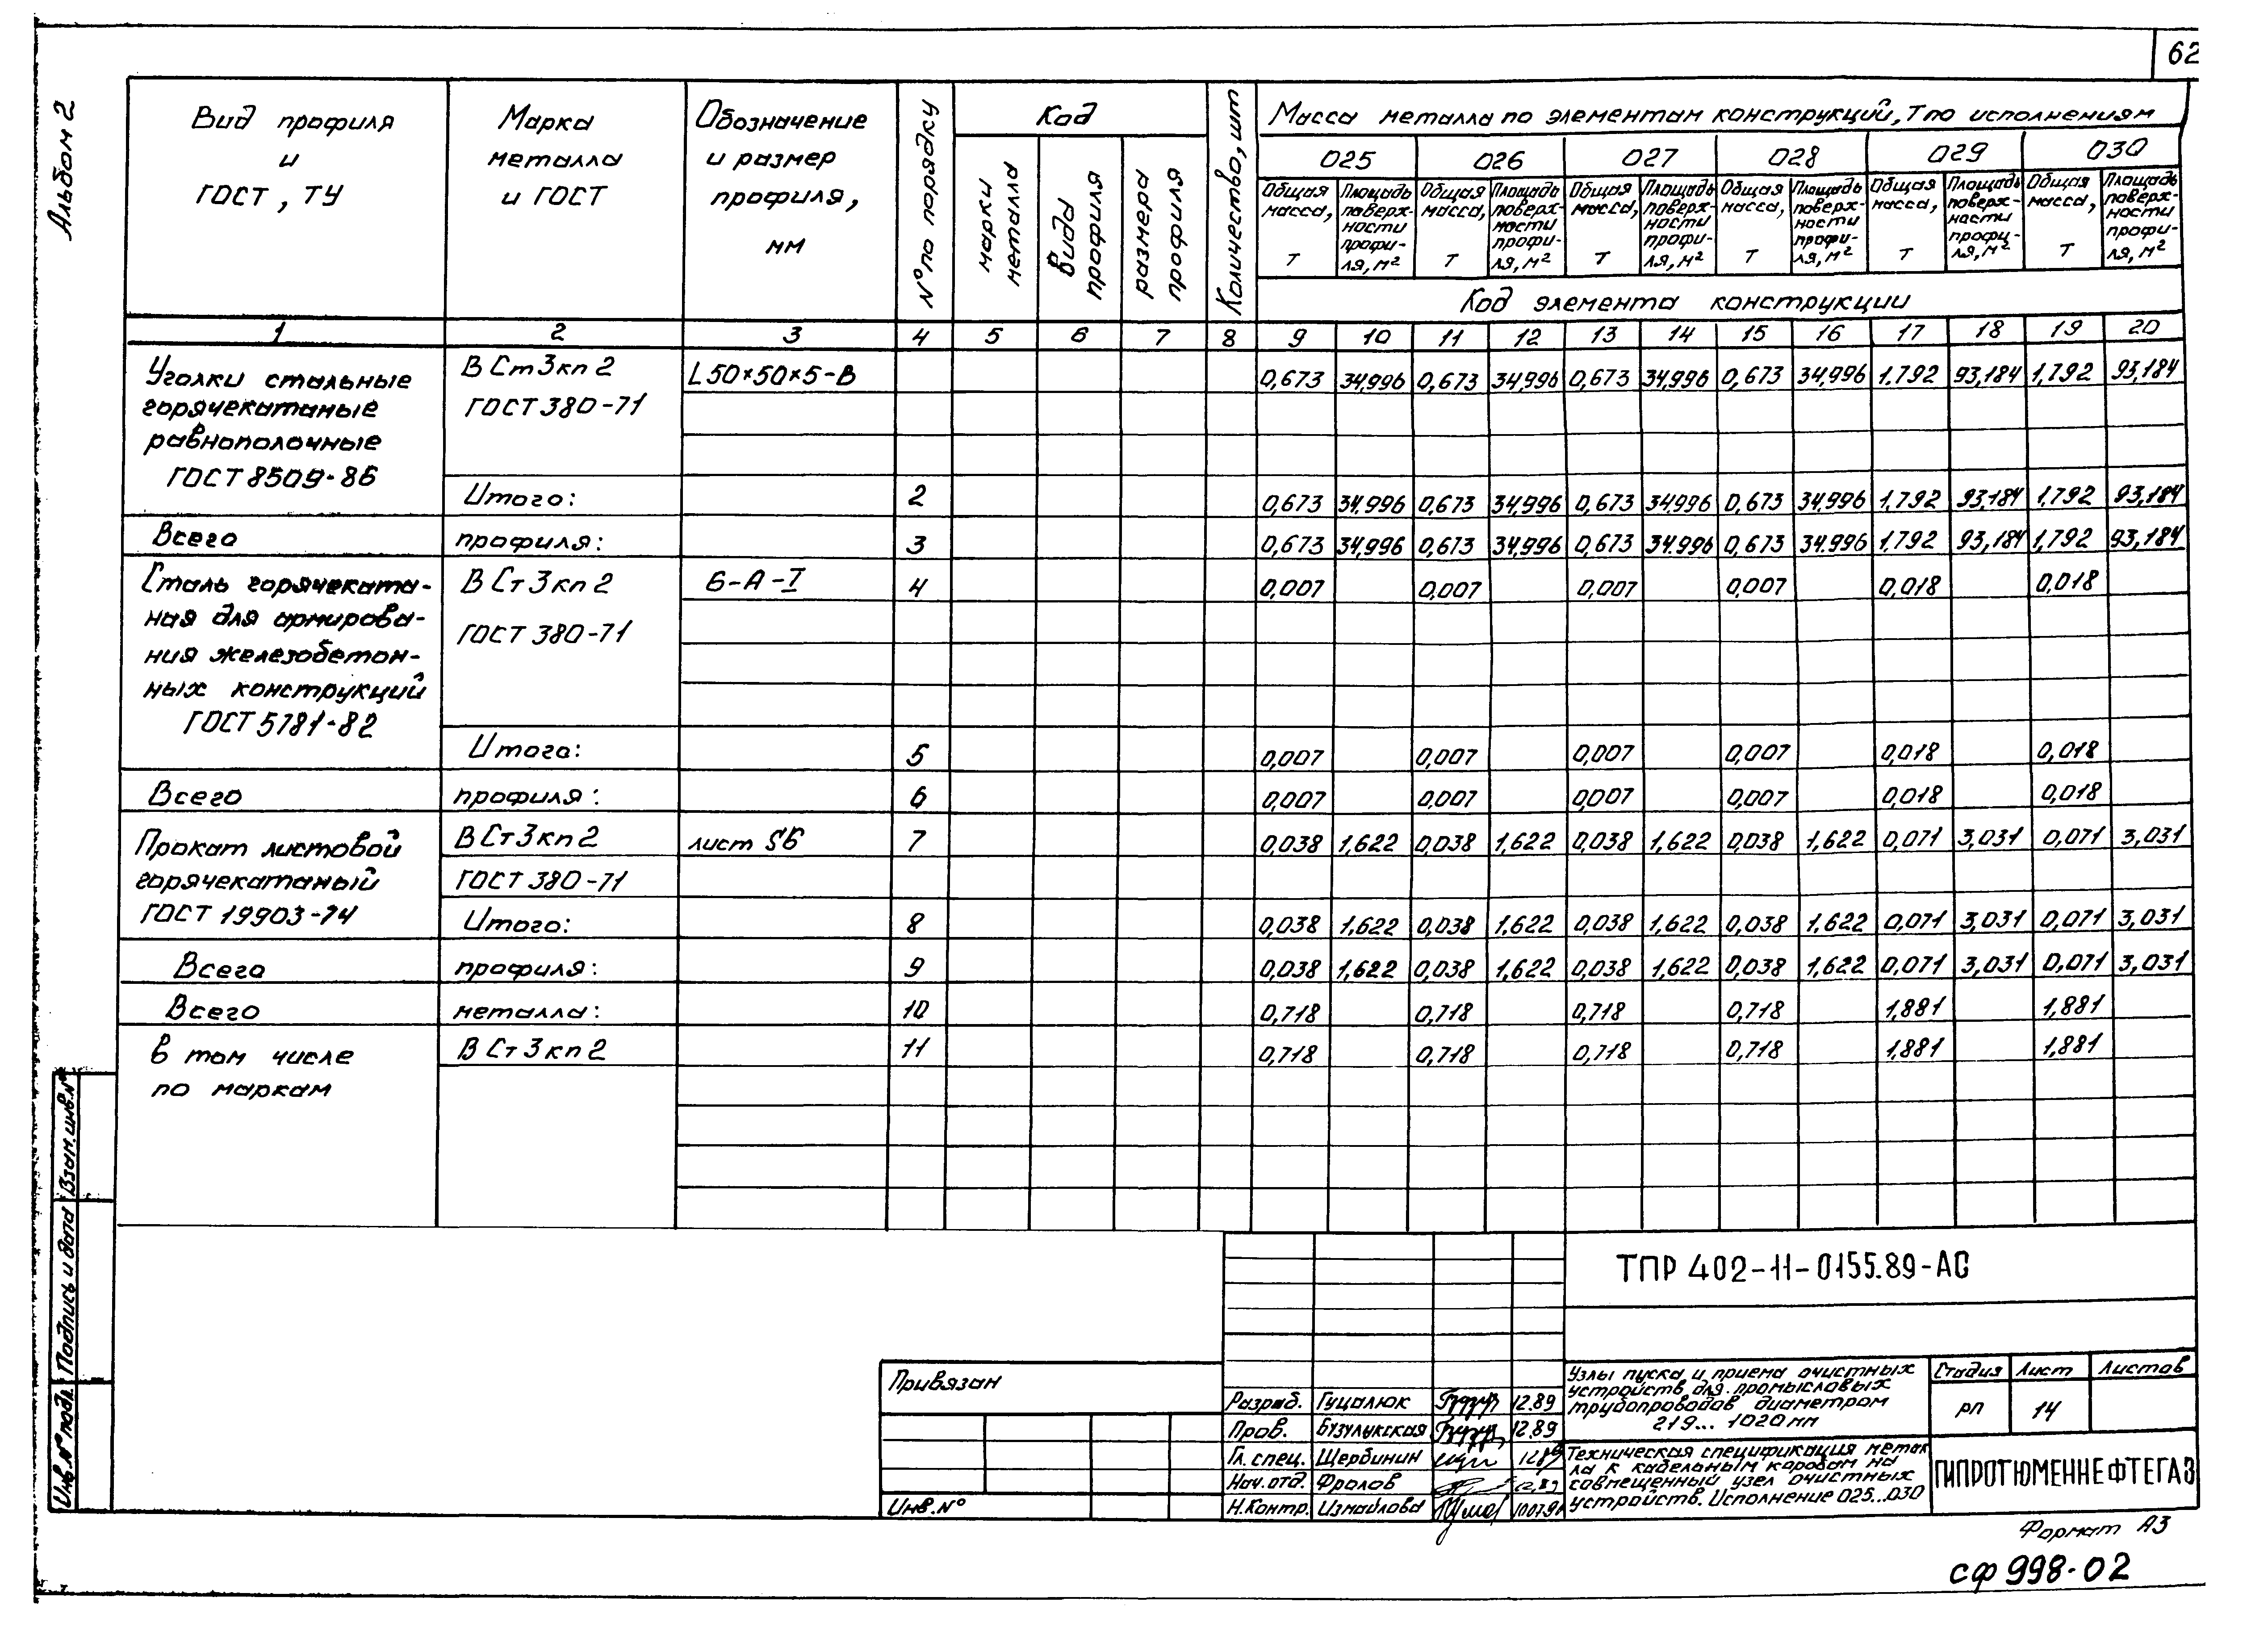 62
Альбом 2
Вид профиля и ГОСТ, ТУ
Марка металла и ГОСТ
Обозначение и размер профиля, мм
N° по порядку
Код
марки металла
вида профиля
размера профиля
Количество, шт
Масса металла по элементам конструкций, т по исполнениям
025 026 027 028 029 030
Общая масса, т Площадь поверхности профиля, м² Общая масса, т Площадь поверхности профиля, м² Общая масса, т Площадь поверхности профиля, м² Общая масса, т Площадь поверхности профиля, м² Общая масса, т Площадь поверхности профиля, м² Общая масса, т Площадь поверхности профиля, м²
Код элемента конструкции
1 2 3 4 5 6 7 8 9 10 11 12 13 14 15 16 17 18 19 20
Уголки стальные
горячекатаные
равнополочные
ГОСТ 8509-86
В Ст3кп2
ГОСТ 380-71
L50×50×5-В
0,673 34,996 0,673 34,996 0,673 34,996 0,673 34,996 1,792 93,184 1,792 93,184
Итого: 2 0,673 34,996 0,673 34,996 0,673 34,996 0,673 34,996 1,792 93,184 1,792 93,184
Всего профиля: 3 0,673 34,996 0,673 34,996 0,673 34,996 0,673 34,996 1,792 93,184 1,792 93,184
Сталь горячеката-
ная для армирова-
ния железобетон-
ных конструкций
ГОСТ 5781-82
В Ст3кп2
ГОСТ 380-71
6-А-I 4 0,007 0,007 0,007 0,007 0,018 0,018
Итого: 5 0,007 0,007 0,007 0,007 0,018 0,018
Всего профиля: 6 0,007 0,007 0,007 0,007 0,018 0,018
Прокат листовой
горячекатаный
ГОСТ 19903-74
В Ст3кп2
ГОСТ 380-71
лист S6 7 0,038 1,622 0,038 1,622 0,038 1,622 0,038 1,622 0,071 3,031 0,071 3,031
Итого: 8 0,038 1,622 0,038 1,622 0,038 1,622 0,038 1,622 0,071 3,031 0,071 3,031
Всего профиля: 9 0,038 1,622 0,038 1,622 0,038 1,622 0,038 1,622 0,071 3,031 0,071 3,031
Всего металла: 10 0,718 0,718 0,718 0,718 1,881 1,881
в том числе
по маркам
В Ст3кп2 11 0,718 0,718 0,718 0,718 1,881 1,881
Взам. инв. N°
Подпись и дата
Инв. N° подл.
ТПР 402-11-0155.89-АС
Привязан
Инв. N°
Разраб. Гуцалюк 12.89
Пров. Бузулукская 12.89
Гл. спец. Щербинин 12.89
Нач. отд. Фролов 12.89
Н. Контр. Измайлова
Узлы пуска и приема очистных
устройств для промысловых
трубопроводов диаметром
219... 1020 мм
Стадия Лист Листов
РП 14
Техническая спецификация метал
ла к кабельным коробам на
совмещенный узел очистных
устройств. Исполнение 025...030
ГИПРОТЮМЕННЕФТЕГАЗ
Формат А3
сф 998-02